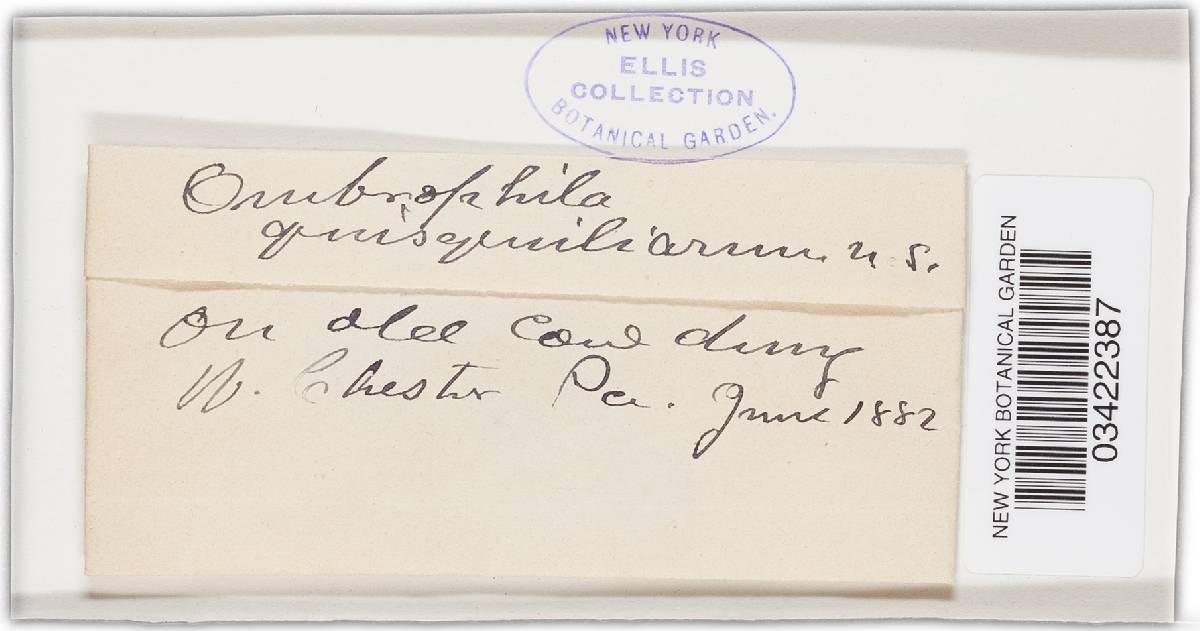 NEW YORK
ELLIS
COLLECTION
BOTANICAL GARDEN.
Ombrophila
quisquiliarum. n. s.
On old Cow dung
W. Chester Pa. June 1882
NEW YORK BOTANICAL GARDEN
03422387